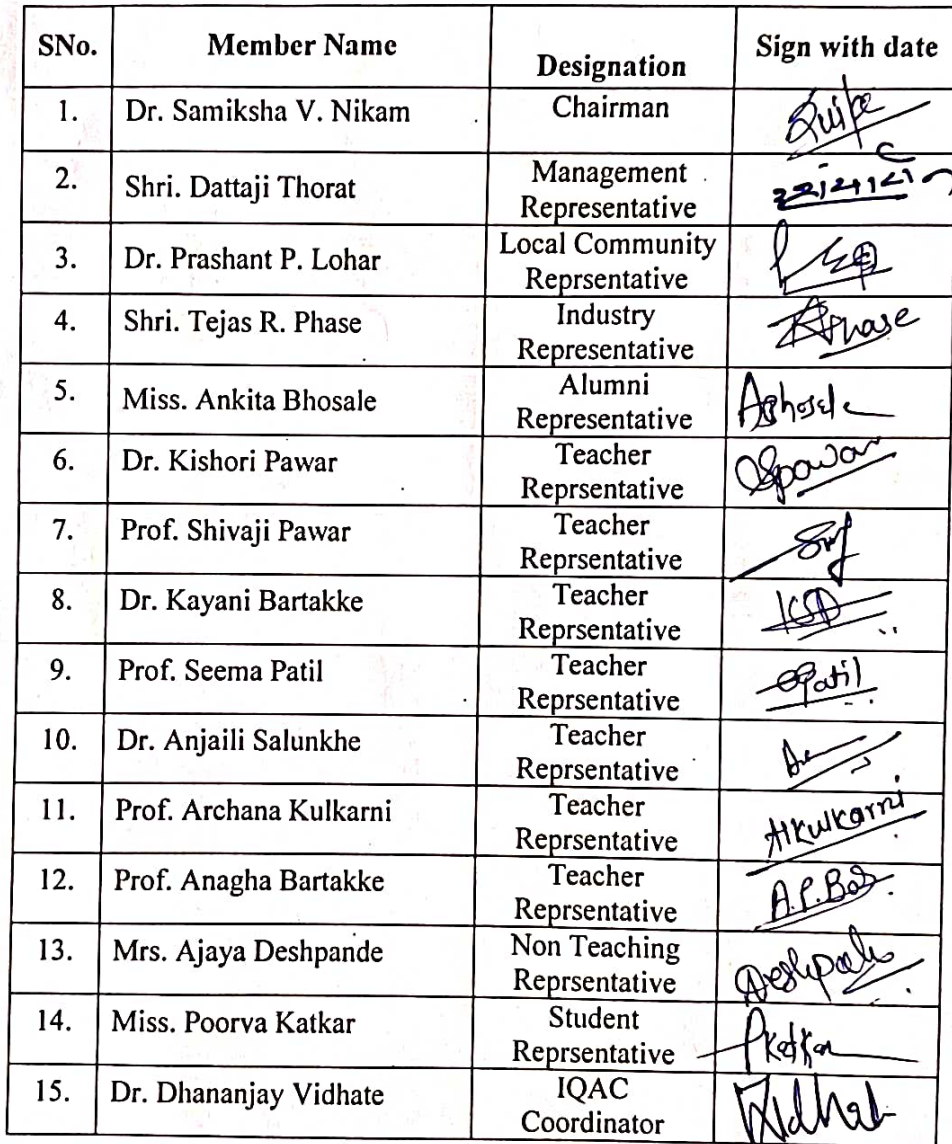 SNo. Member Name Designation Sign with date
1. Dr. Samiksha V. Nikam Chairman
2. Shri. Dattaji Thorat Management
Representative
3. Dr. Prashant P. Lohar Local Community
Reprsentative
4. Shri. Tejas R. Phase Industry
Representative
5. Miss. Ankita Bhosale Alumni
Representative ABhosale
6. Dr. Kishori Pawar Teacher
Reprsentative
7. Prof. Shivaji Pawar Teacher
Reprsentative
8. Dr. Kayani Bartakke Teacher
Reprsentative
9. Prof. Seema Patil Teacher
Reprsentative SPatil
10. Dr. Anjaili Salunkhe Teacher
Reprsentative
11. Prof. Archana Kulkarni Teacher
Reprsentative AKulkarni
12. Prof. Anagha Bartakke Teacher
Reprsentative
13. Mrs. Ajaya Deshpande Non Teaching
Reprsentative
14. Miss. Poorva Katkar Student
Reprsentative
15. Dr. Dhananjay Vidhate IQAC
Coordinator